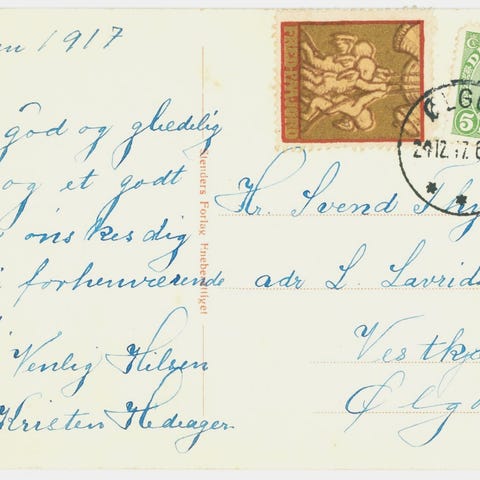 en 1917
God og glædelig
og et godt
ønskes dig
forhenværende
Venlig Hilsen
Kristen Hedeager
Stenders Forlag. Eneberettiget
ØLG
24.12.17.6
5
Hr. Svend Thy
adr L. Lavrid
Vestkj
Ølgo